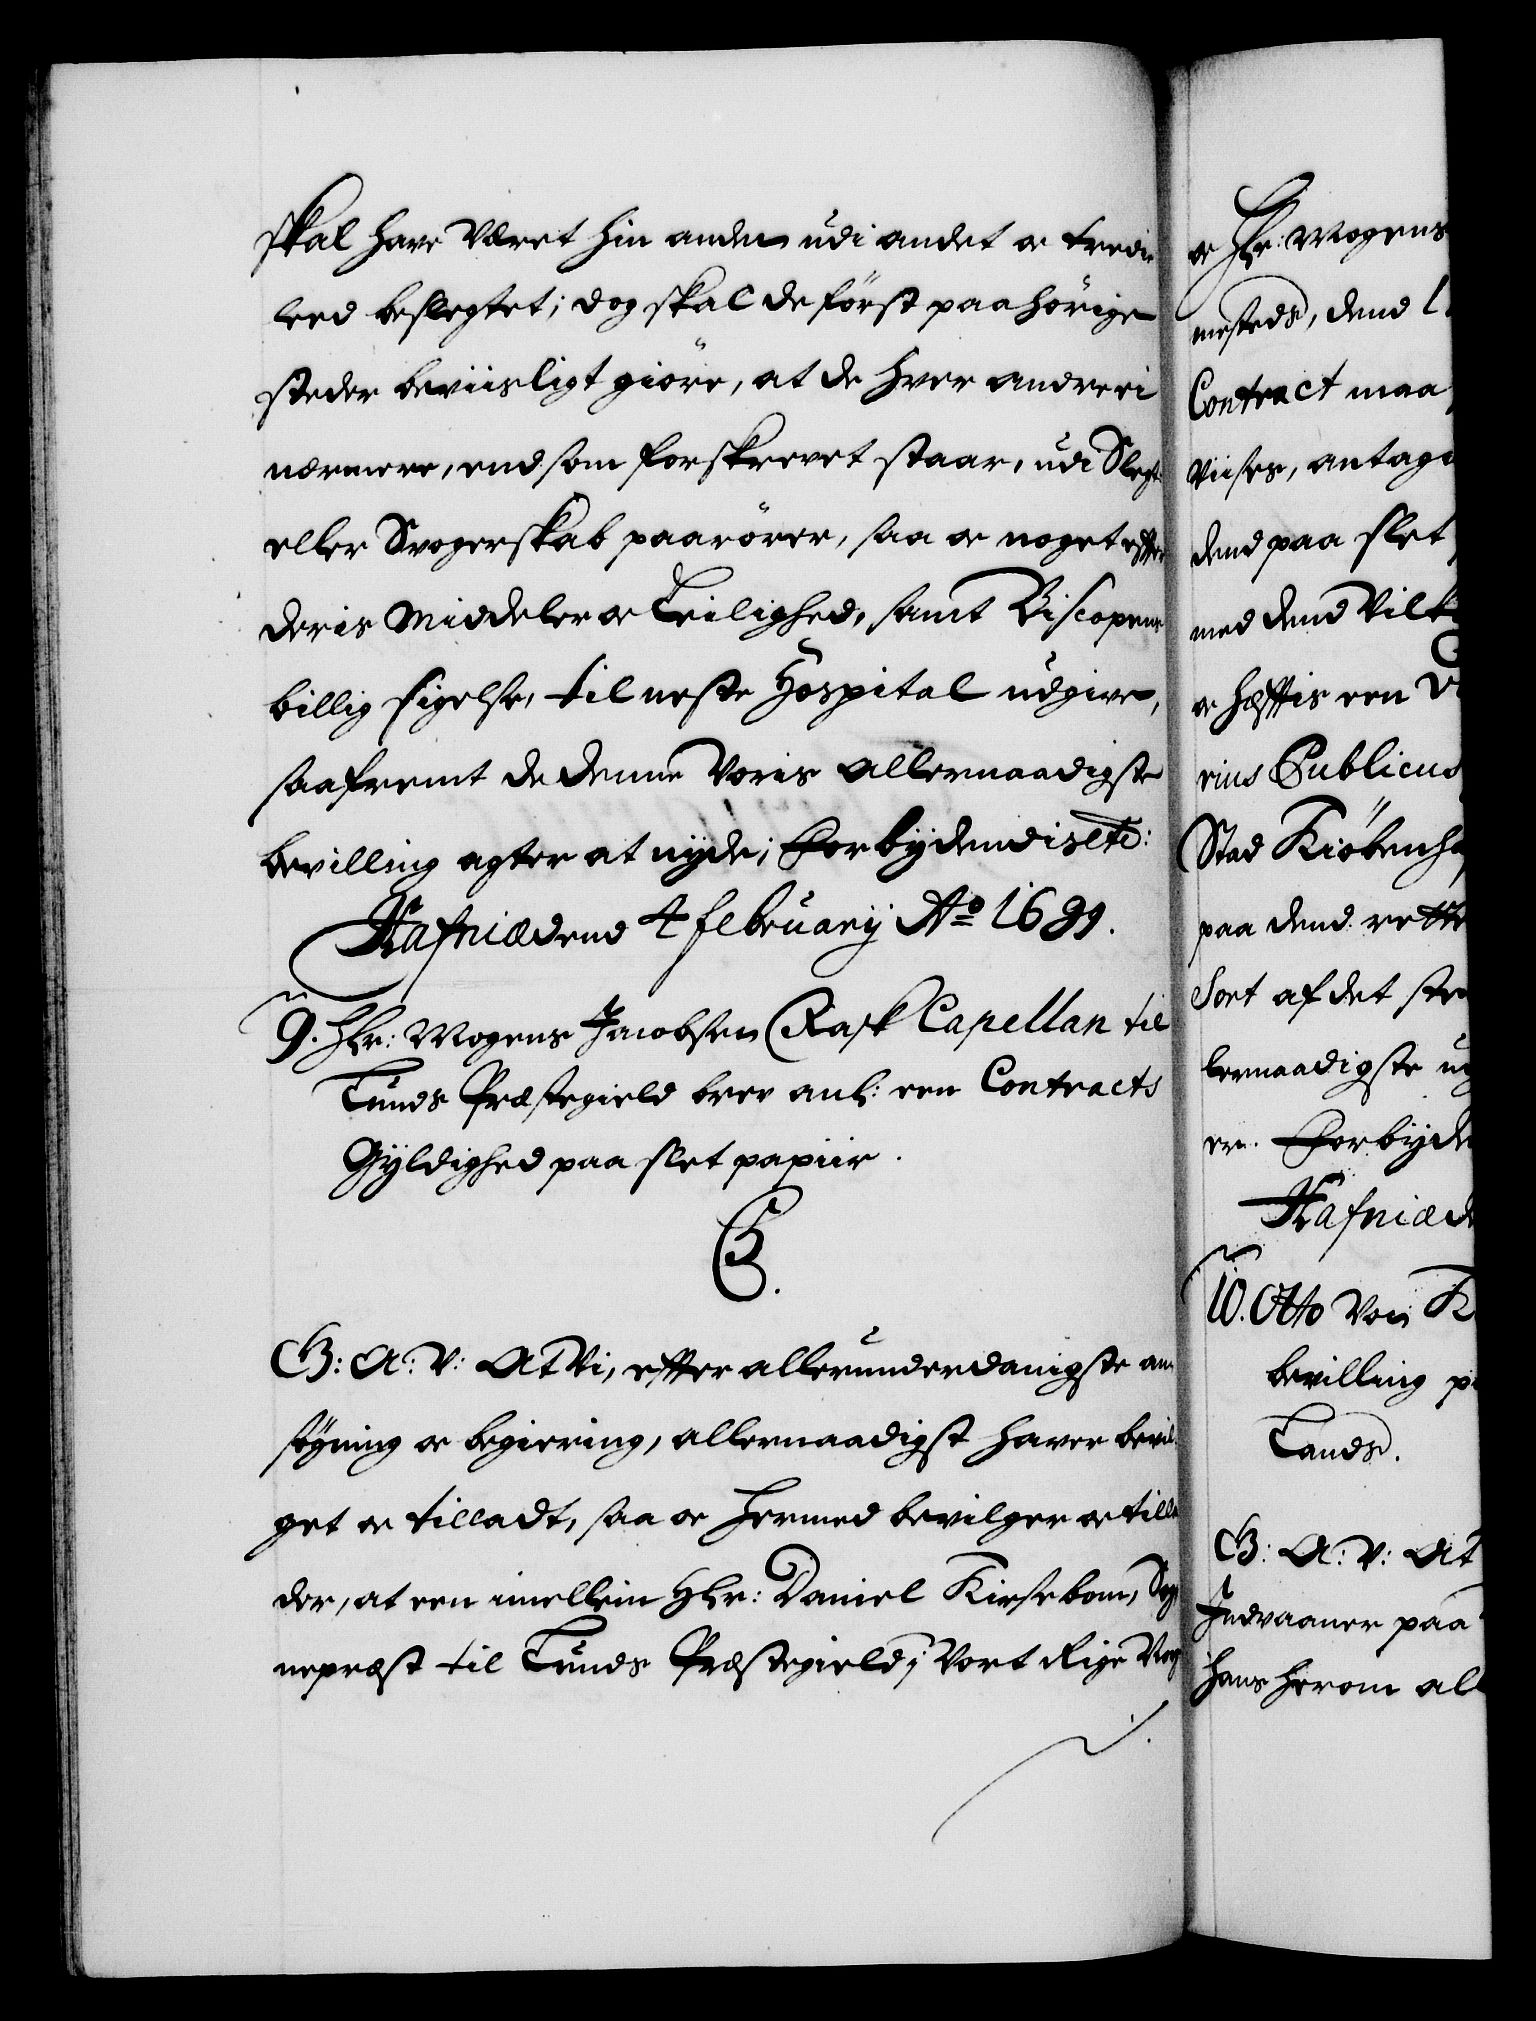 skal have Været hin anden udi andet oc tredie
leed beslegtet; dog skal de först paahörige
steder beviisligt giöre, at de hver andre ei
nærmere, end som forskrevet staar, udi Slegt
eller Svogerskab paarörer, saa oc noget efter
deris Middeler oc Leilighed, samt Biscopens
billig sigelse, til neste Hospital udgive,
saafremt de denne Voris allernaadigste
bevilling agter at nyde; Forbydendis etc:
Hafniæ dend 4 february Ao 1689.
9. Hr: Mogens Jacobsen Rask Capellan til
Lunds Præstegield brev anl: een Contracts
Gyldighed paa slet papiir.
C5.
G: A: V: At Vi, efter allerunderdanigste an
sögning oc begiering, allernaadigst haver bevil
get oc tilladt, saa oc hermed bevilger oc tilla
der, at een imellem Hr: Daniel Kirsebom, Sog
nepræst til Lunds Præstegield i Vort Rige Norg
oc Hr: Mogens
mesteds, dend
Contract maa
Viises, antage
dend paa slet
med dend Vilk
oc heftis een
rius Publicus
Stad Kiöbenha
paa dend rette
Sort af det ste
lernaadigste
er. Forbyde
Hafniæ de
10. Otto Von K
bevilling p
Lands.
G: A: V: At
Indvaaner paa
hans herom all